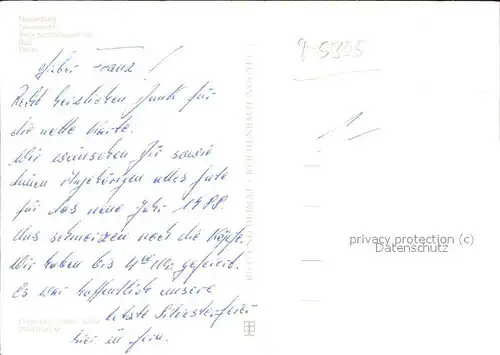 Lieber Franz!
Recht herzlichen Dank für
die nette Karte.
Wir wünschen Dir sowie
deinen Angehörigen alles Gute
für das neue Jahr 1988.
Uns schmerzen noch die Köpfe.
Wir haben bis 400 Uhr gefeiert.
Es war hoffentlich unsere
letzte Silvesterfeier
hier in
P-5305
privacy protection (c)
Datenschutz